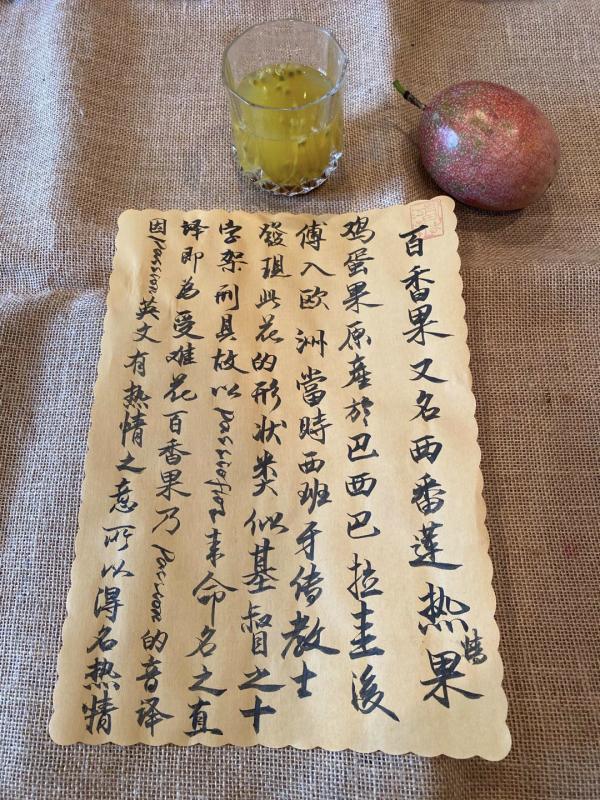 百香果又名西番蓮热情果
鸡蛋果原產於巴西巴拉圭後
傅入欧洲當時西班牙传教士
發現此花的形状类似基督之十
字架刑具故以passionflower来命名之直
译即為受难花百香果乃passion的音译
因passion英文有热情之意所以得名热情